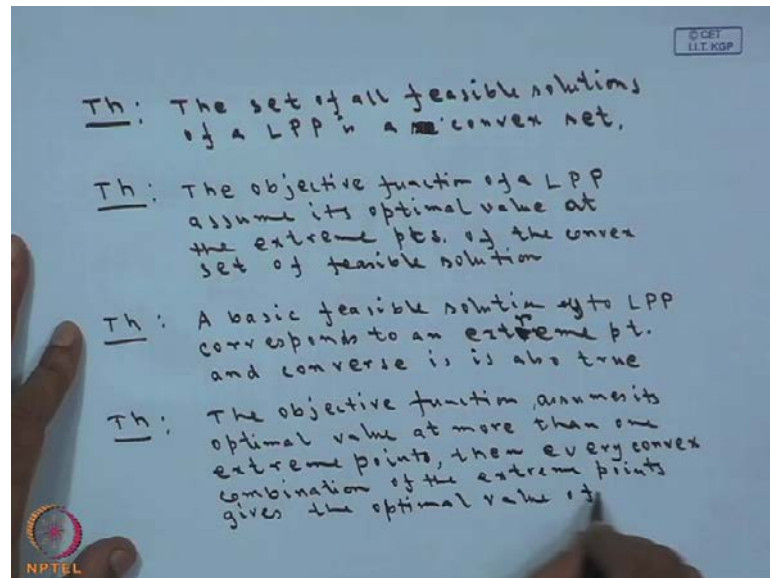 © CET
I.I.T. KGP
Th: The set of all feasible solutions
of a LPP is a convex set.
Th: The objective function of a LPP
assume its optimal value at
the extreme pts. of the convex
set of feasible solution
Th: A basic feasible solution to LPP
corresponds to an extreme pt.
and converse is is also true
Th: The objective function assumes its
optimal value at more than one
extreme points, then every convex
combination of the extreme points
gives the optimal value of
NPTEL